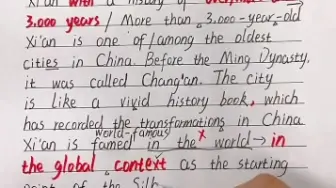 Xi'an with a history of
3.000 years / More than 3.000-year-old
Xi'an is one of/among the oldest
cities in China. Before the Ming Dynasty,
it was called Chang'an. The city
is like a vivid history book, which
has recorded the transformations in China
world-famous x
Xi'an is famed in the world → in
the global context as the starting
of the Silk